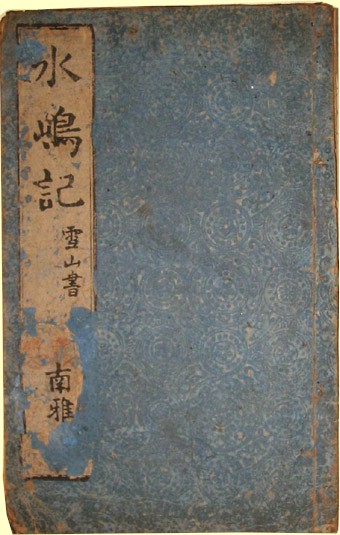 水嶋記
雪山書
南雅